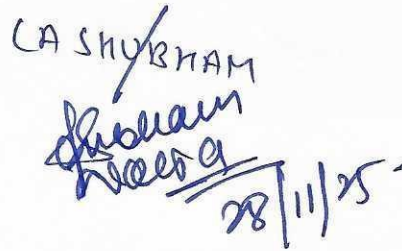 CA SHUBHAM
Shubham
28/11/25